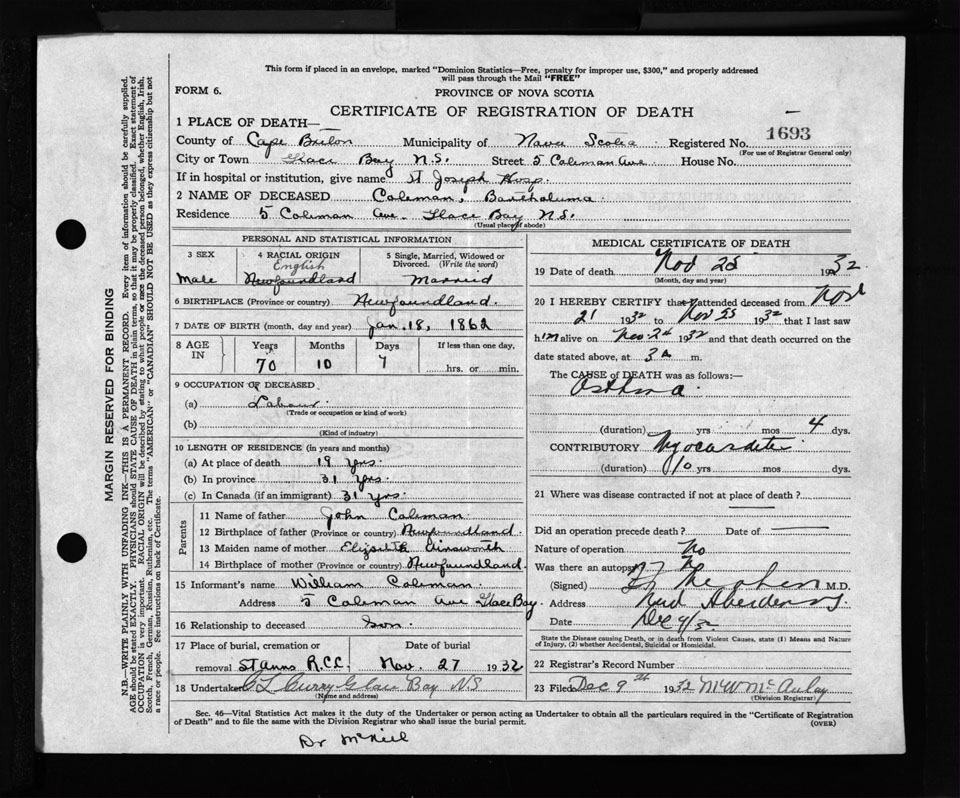 This form if placed in an envelope, marked "Dominion Statistics—Free, penalty for improper use, $300," and properly addressed
will pass through the Mail "FREE"
FORM 6.
PROVINCE OF NOVA SCOTIA
CERTIFICATE OF REGISTRATION OF DEATH
1 PLACE OF DEATH—
County of Cape Breton Municipality of Nova Scotia Registered No. 1693
(For use of Registrar General only)
City or Town Glace Bay N.S. Street 5 Coleman Ave House No.
If in hospital or institution, give name St Joseph Hosp.
2 NAME OF DECEASED Coleman, Bartholuma
Residence 5 Coleman Ave. Glace Bay N.S.
(Usual place of abode)
PERSONAL AND STATISTICAL INFORMATION
3 SEX 4 RACIAL ORIGIN 5 Single, Married, Widowed or
Divorced. (Write the word)
English
Male Newfoundland Married
6 BIRTHPLACE (Province or country) Newfoundland.
7 DATE OF BIRTH (month, day and year) Jan. 18, 1862
8 AGE IN Years Months Days If less than one day.
70 10 7 hrs. or min.
9 OCCUPATION OF DECEASED.
(a) Labour
(Trade or occupation or kind of work)
(b)
(Kind of industry)
10 LENGTH OF RESIDENCE (in years and months)
(a) At place of death 19 yrs.
(b) In province 31 yrs.
(c) In Canada (if an immigrant) 31 yrs.
Parents
11 Name of father John Coleman
12 Birthplace of father (Province or country) Newfoundland.
13 Maiden name of mother Elizabeth Ainsworth
14 Birthplace of mother (Province or country) Newfoundland.
15 Informant's name William Coleman
Address 5 Coleman Ave Glace Bay.
16 Relationship to deceased Son
17 Place of burial, cremation or Date of burial
removal St Anns R.C.C. Nov. 27 1932
18 Undertaker C L Curry Glace Bay NS
(Name and address)
MEDICAL CERTIFICATE OF DEATH
19 Date of death Nov 25 1932
(Month, day and year)
20 I HEREBY CERTIFY that I attended deceased from Nov
21 1932 to Nov 25 1932 that I last saw
him alive on Nov 24 1932 and that death occurred on the
date stated above, at 3 a m.
The CAUSE of DEATH was as follows:—
Asthma
(duration) yrs mos 4 dys.
CONTRIBUTORY Myocarditis
(duration) 10 yrs mos dys.
21 Where was disease contracted if not at place of death?
Did an operation precede death? Date of
Nature of operation No
Was there an autopsy? No
(Signed) M.D.
Address New Aberdeen N.S.
Date Dec 9/32
State the Disease causing Death, or in death from Violent Causes, state (1) Means and Nature
of Injury, (2) whether Accidental, Suicidal or Homicidal.
22 Registrar's Record Number
23 Filed Dec 9th 1932 M W McAulay
(Division Registrar)
Sec. 46—Vital Statistics Act makes it the duty of the Undertaker or person acting as Undertaker to obtain all the particulars required in the "Certificate of Registration
of Death" and to file the same with the Division Registrar who shall issue the burial permit.
(OVER)
Dr McNeil
MARGIN RESERVED FOR BINDING
N.B.—WRITE PLAINLY WITH UNFADING INK—THIS IS A PERMANENT RECORD. Every item of information should be carefully supplied.
AGE should be stated EXACTLY. PHYSICIANS should STATE CAUSE OF DEATH in plain terms, so that it may be properly classified. Exact statement of
OCCUPATION is very important. RACIAL ORIGIN will be described by stating to what people or race the deceased person belonged, whether English, Irish,
Scotch, French, German, Russian, Ruthenian, etc. The terms "AMERICAN" or "CANADIAN" SHOULD NOT BE USED as they express citizenship but not
a race or people. See instructions on back of Certificate.